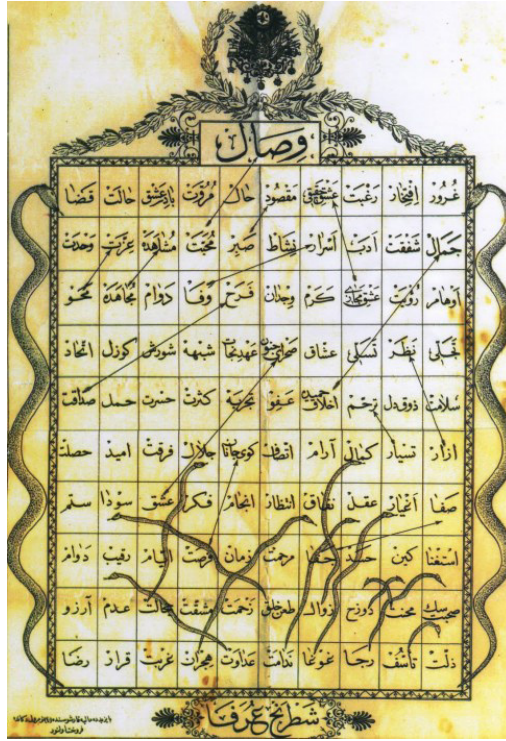 وصال
غرور افتخار رغبت عشق حقیقی مقصود حال مروت باده عشق حالت قضا
جمال شفقت ادب اسرار نشاط صبر محبت مشاهده عزت وحدت
اوهام رؤیت عشق مجازی کرم وجدان فرح وفا دوام مجاهده محو
تجلی نظر تسلی عشاق صحرای جنون شبهه شورش کوزل اتحاد
سلامت ذوق دل ترحم اخلاق حمیده عفو تجربه کثرت حسرت حمد صداقت
ازار تسیار کمال آرام انصاف کوی جانان جلال فرقت امید حصلت
صفا اغیار عقل نفاق انتظار انجام فکر عشق سودا ستم
استغنا کین حسد جفا مرحمت زمان فرصت ایام رقیب دوام
محنت دوزخ زوال طعن خلق زحمت مشقت عدم آرزو
ذلت تأسف رجا غوغا ندامت عداوت هجران غربت قرار رضا
شطرنج عرفا